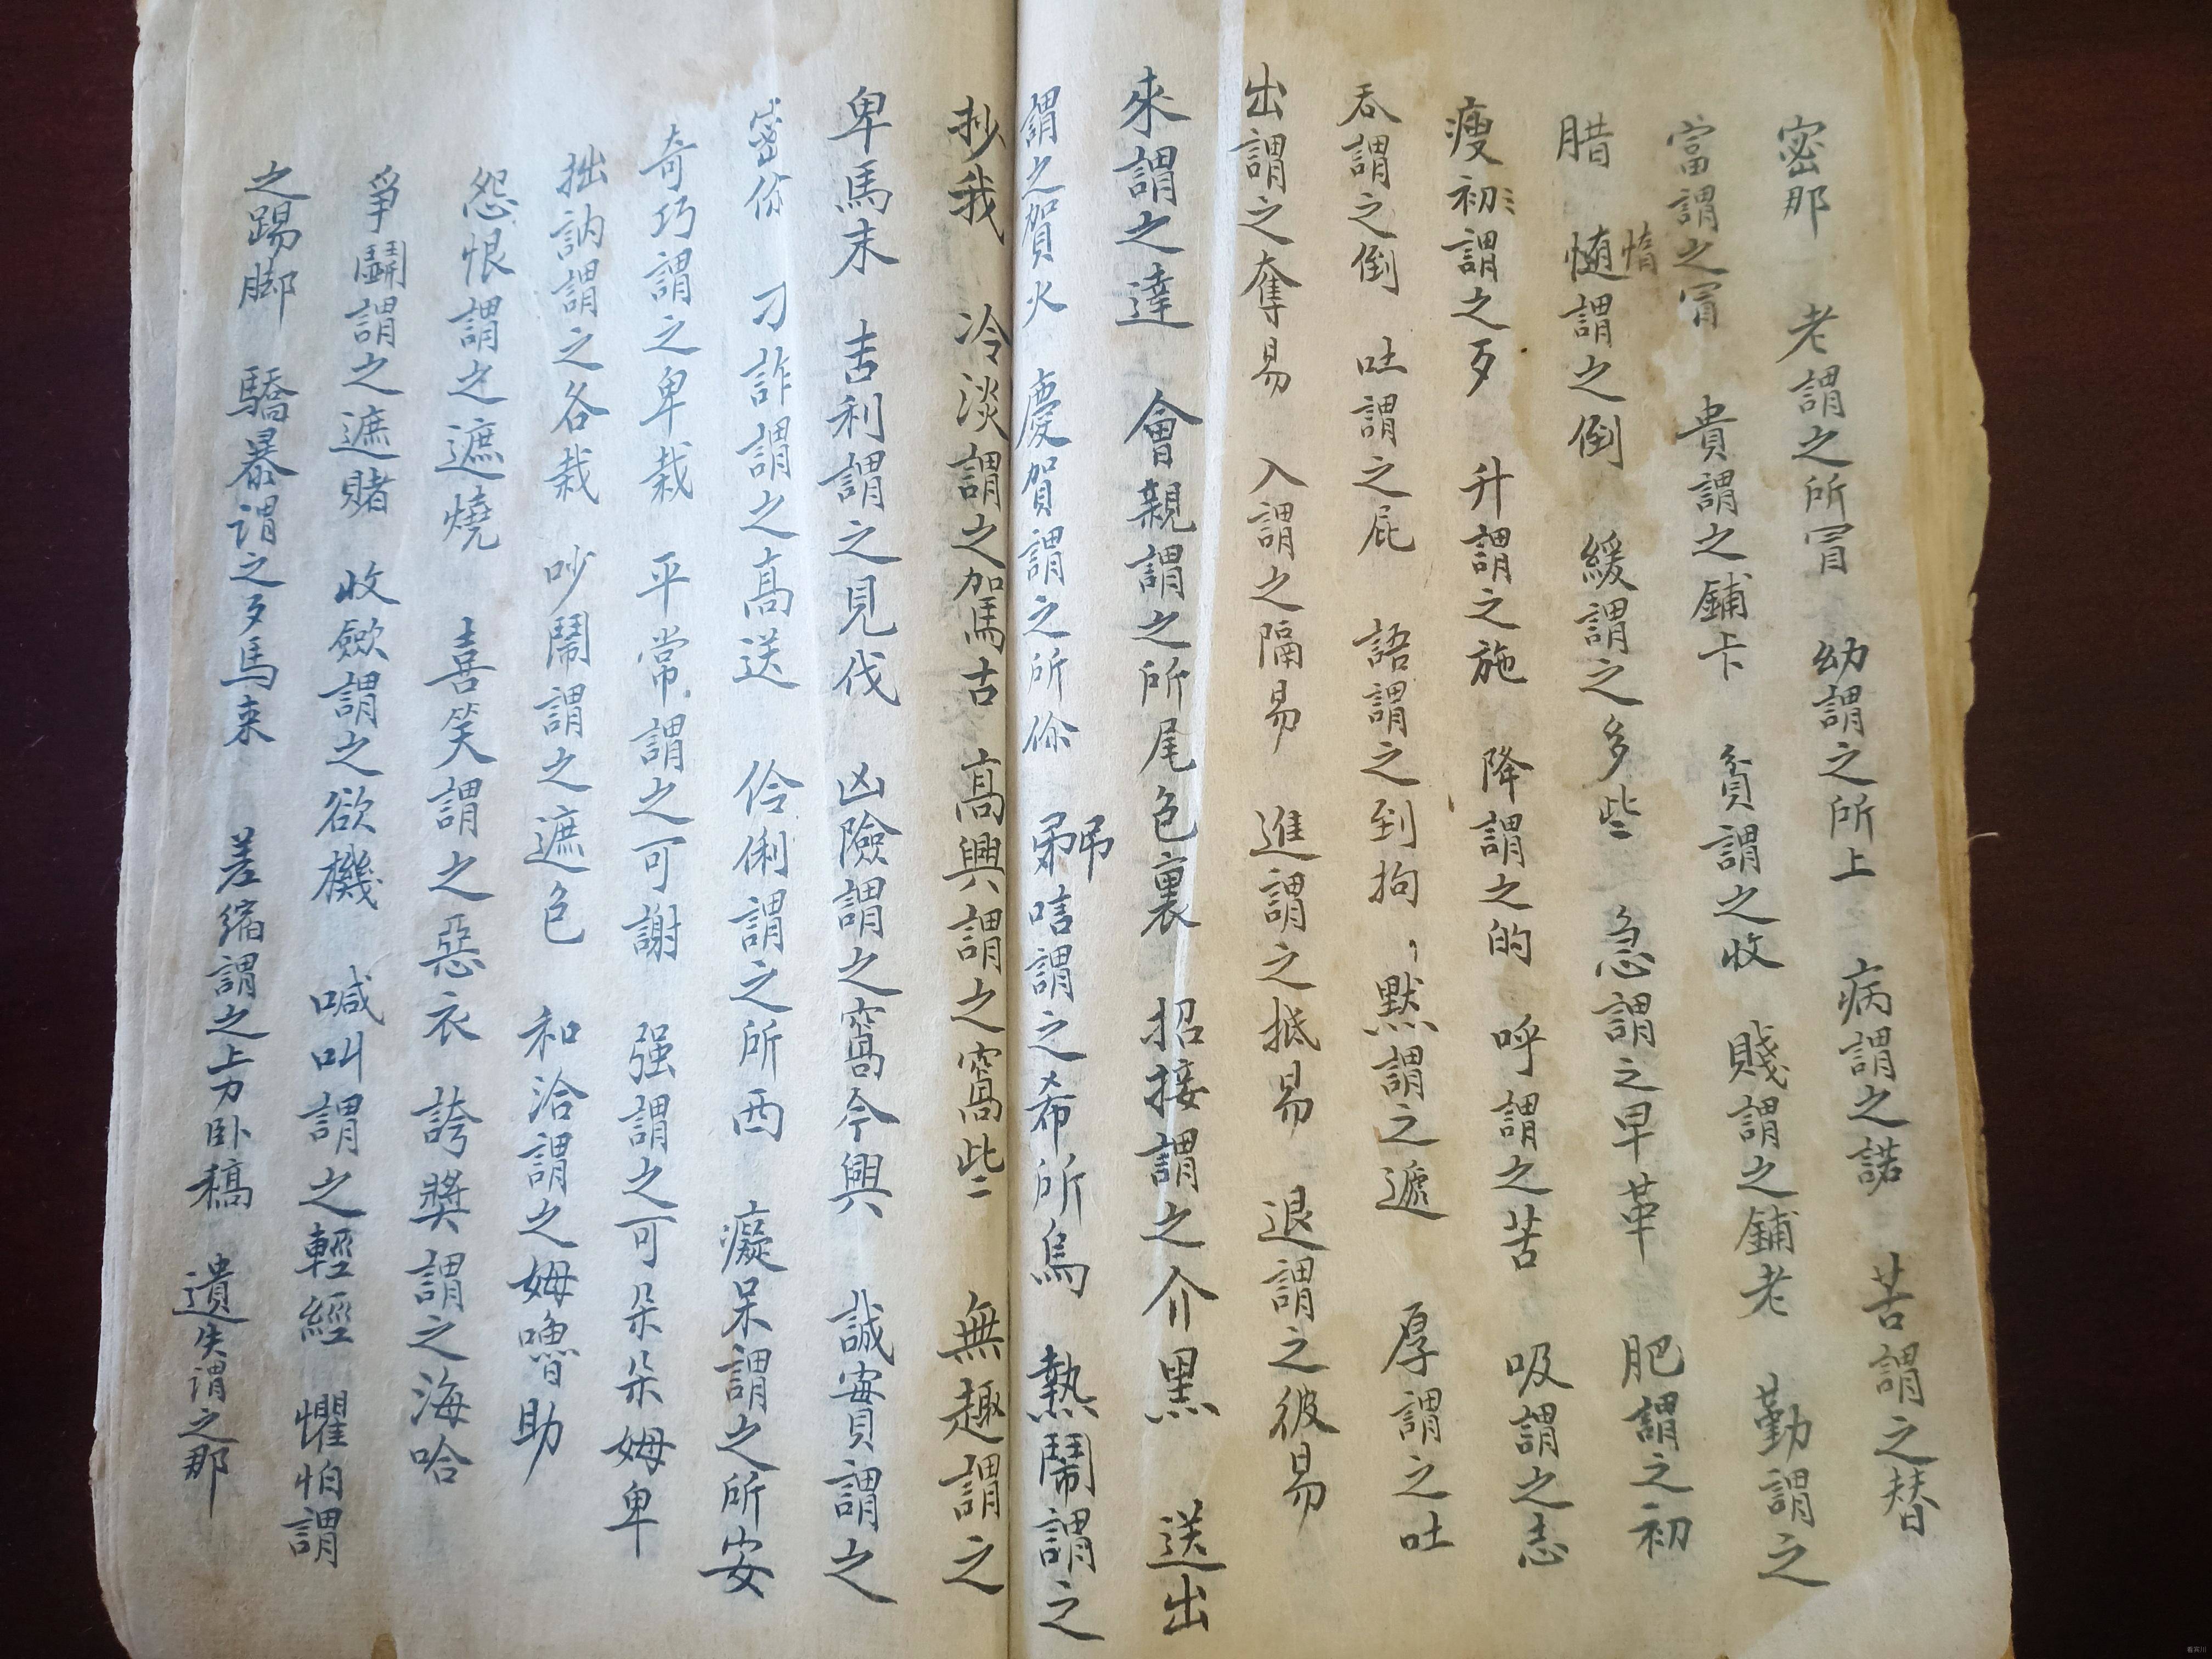 密那　老謂之所冐　幼謂之所上　病謂之諾　苦謂之替
富謂之冐　貴謂之鋪卡　貧謂之收　賤謂之鋪老　勤謂之
腊　惰謂之倒　緩謂之多些　急謂之早革　肥謂之初
瘦初〻謂之歹　升謂之施　降謂之的　呼謂之苦　吸謂之志
吞謂之倒　吐謂之屁　語謂之到拘　默謂之遞　厚謂之吐
出謂之奪易　入謂之隔易　進謂之抵易　退謂之彼易
來謂之達　會親謂之所尾色裏　招接謂之介黑　送出
謂之賀火　慶賀謂之所你　弔唁謂之希所烏　熱鬧謂之
抄我　冷淡謂之駕古　高興謂之窩些　無趣謂之
卑馬末　吉利謂之見伐　凶險謂之窩今興　誠實謂之
密你　刁詐謂之高送　伶俐謂之所西　癡呆謂之所安
奇巧謂之卑栽　平常謂之可謝　强謂之可朵朵姆卑
拙訥謂之各栽　吵鬧謂之遮色　和洽謂之姆嚕助
怨恨謂之遮燒　喜笑謂之惡衣　誇獎謂之海哈
爭鬭謂之遮賭　收歛謂之欲機　喊叫謂之輕經　懼怕謂
之踢脚　驕暴谓之歹馬来　差缩謂之上力卧稿　遺失谓之那
看宾川